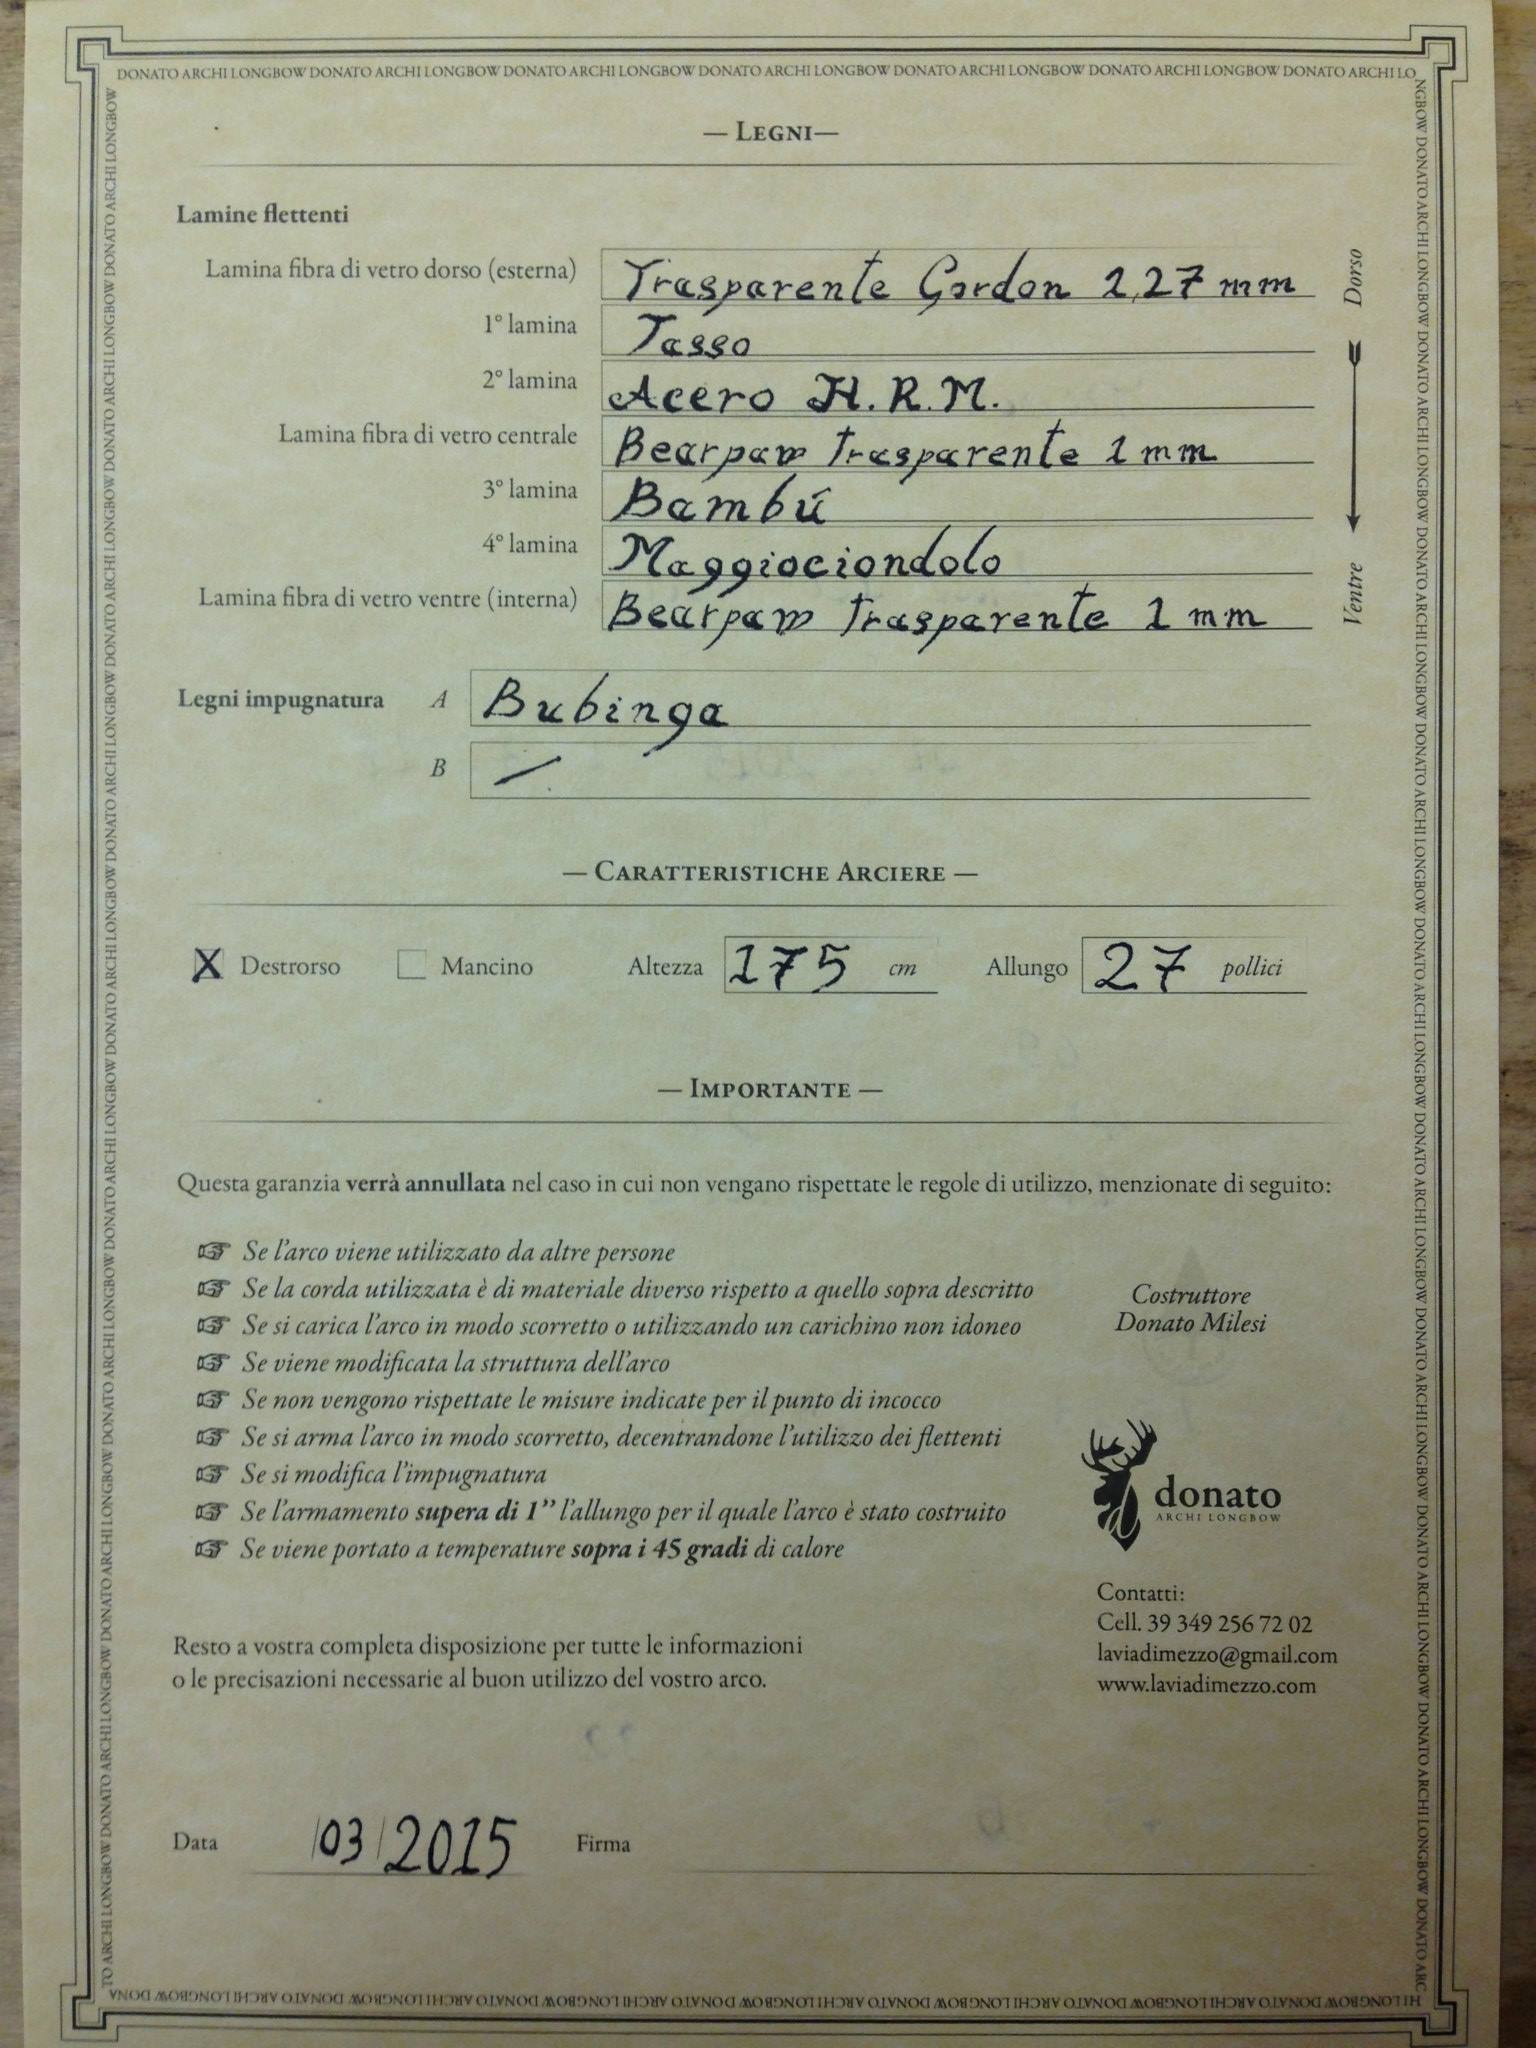 DONATO ARCHI LONGBOW DONATO ARCHI LONGBOW DONATO ARCHI LONGBOW DONATO ARCHI LONGBOW DONATO ARCHI LONGBOW DONATO ARCHI LONGBOW DONATO ARCHI LO
— LEGNI—
Lamine flettenti
Lamina fibra di vetro dorso (esterna) Trasparente Gordon 1,27 mm
Dorso
1° lamina Tasso
2° lamina Acero H.R.M.
Lamina fibra di vetro centrale Bearpaw trasparente 1 mm
3° lamina Bambú
4° lamina Maggiociondolo
Lamina fibra di vetro ventre (interna) Bearpaw trasparente 1 mm
Ventre
Legni impugnatura A Bubinga
B /
— CARATTERISTICHE ARCIERE —
X Destrorso Mancino Altezza 175 cm Allungo 27 pollici
— IMPORTANTE —
Questa garanzia verrà annullata nel caso in cui non vengano rispettate le regole di utilizzo, menzionate di seguito:
☞ Se l'arco viene utilizzato da altre persone
☞ Se la corda utilizzata è di materiale diverso rispetto a quello sopra descritto
☞ Se si carica l'arco in modo scorretto o utilizzando un carichino non idoneo
☞ Se viene modificata la struttura dell'arco
☞ Se non vengono rispettate le misure indicate per il punto di incocco
☞ Se si arma l'arco in modo scorretto, decentrandone l'utilizzo dei flettenti
☞ Se si modifica l'impugnatura
☞ Se l'armamento supera di 1” l'allungo per il quale l'arco è stato costruito
☞ Se viene portato a temperature sopra i 45 gradi di calore
Costruttore
Donato Milesi
donato
ARCHI LONGBOW
Contatti:
Cell. 39 349 256 72 02
laviadimezzo@gmail.com
www.laviadimezzo.com
Resto a vostra completa disposizione per tutte le informazioni
o le precisazioni necessarie al buon utilizzo del vostro arco.
Data /03/2015 Firma